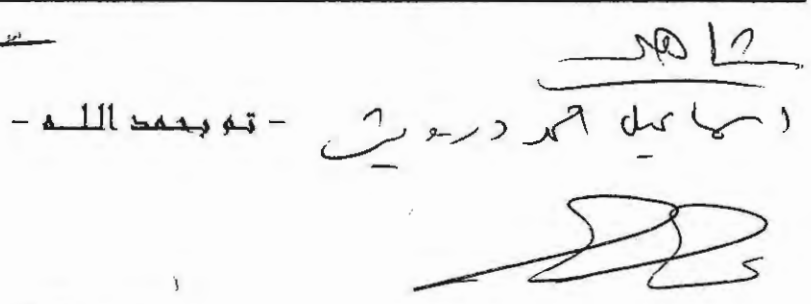 شاهد
اسماعيل احمد درويش - تم بحمد الله -